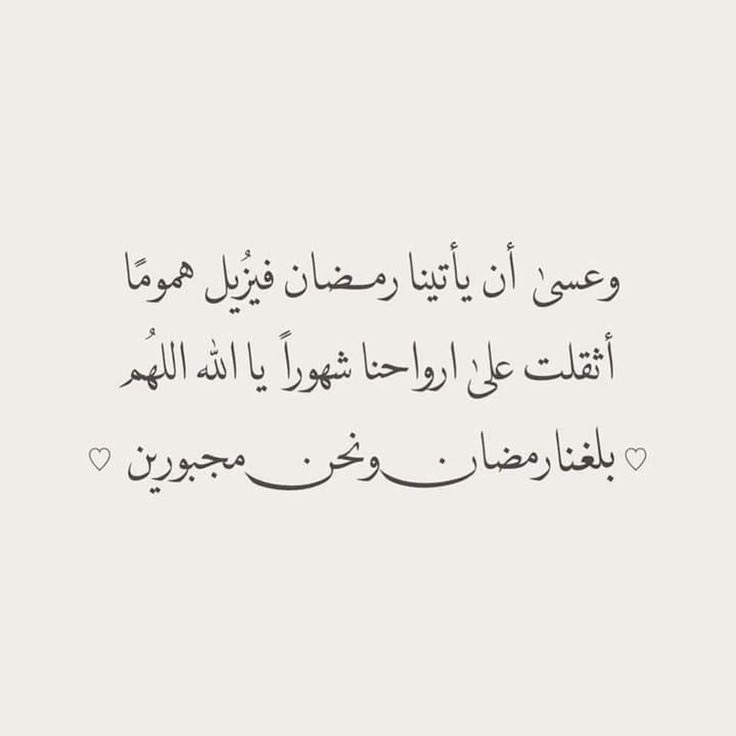 وعسىٰ أن يأتينا رمـضان فيزُيل همومًا
أثقلت علىٰ ارواحنا شهوراً يا الله اللهُم
♡ بلغنا رمضان ونحن مجبورين ♡